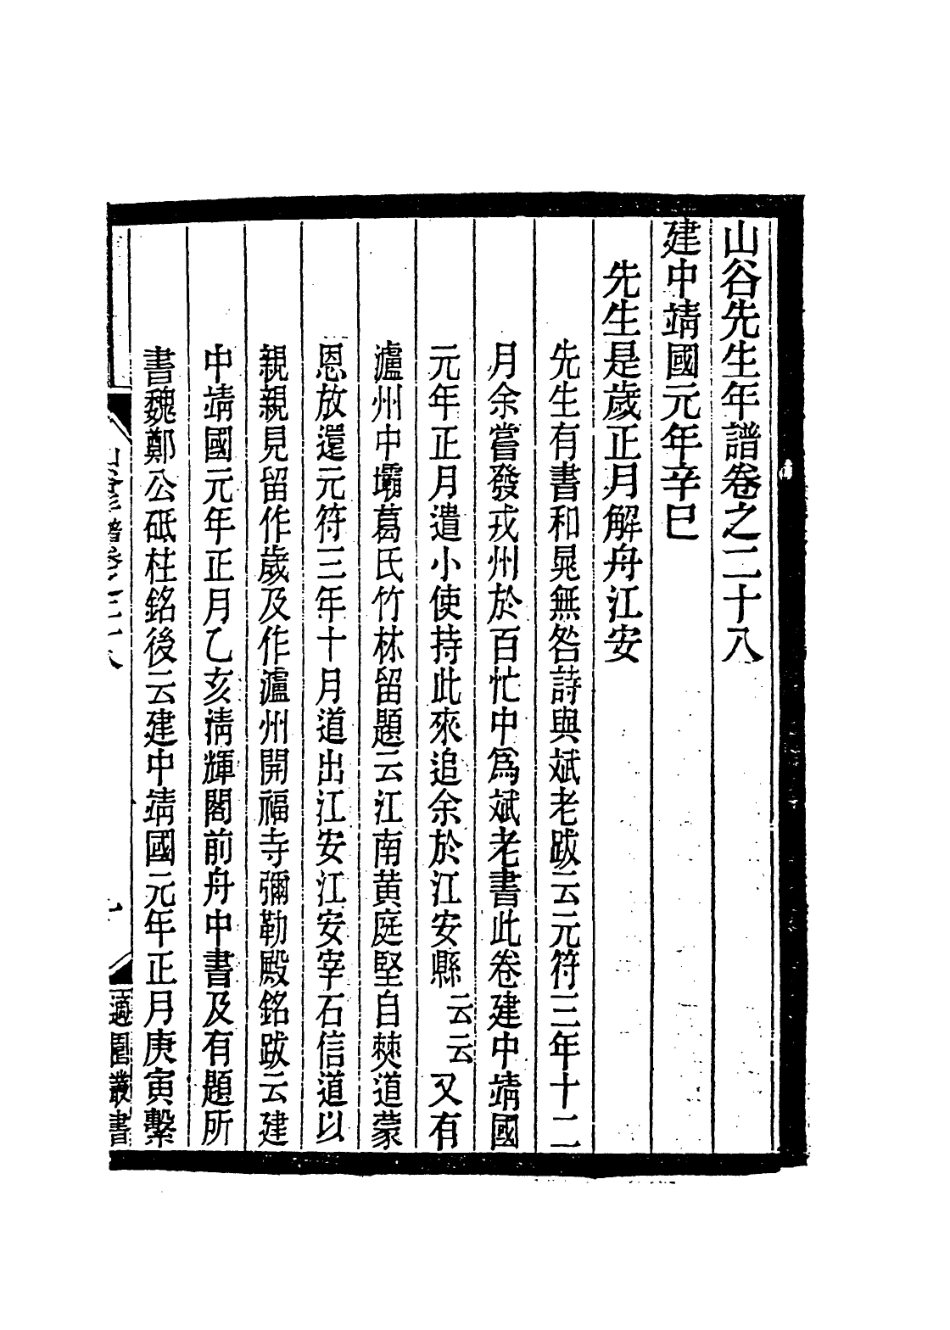 山谷先生年譜卷之二十八
建中靖國元年辛巳
先生是歲正月解舟江安
先生有書和晁無咎詩與斌老跋云元符三年十二
月余嘗發戎州於百忙中爲斌老書此卷建中靖國
元年正月遣小使持此來追余於江安縣云云又有
瀘州中壩葛氏竹林留題云江南黄庭堅自僰道蒙
恩放還元符三年十月道出江安江安宰石信道以
親親見留作歲及作瀘州開福寺彌勒殿銘跋云建
中靖國元年正月乙亥淸輝閣前舟中書及有題所
書魏鄭公砥柱銘後云建中靖國元年正月庚寅繫
山谷年譜卷之二十八
一
適園叢書